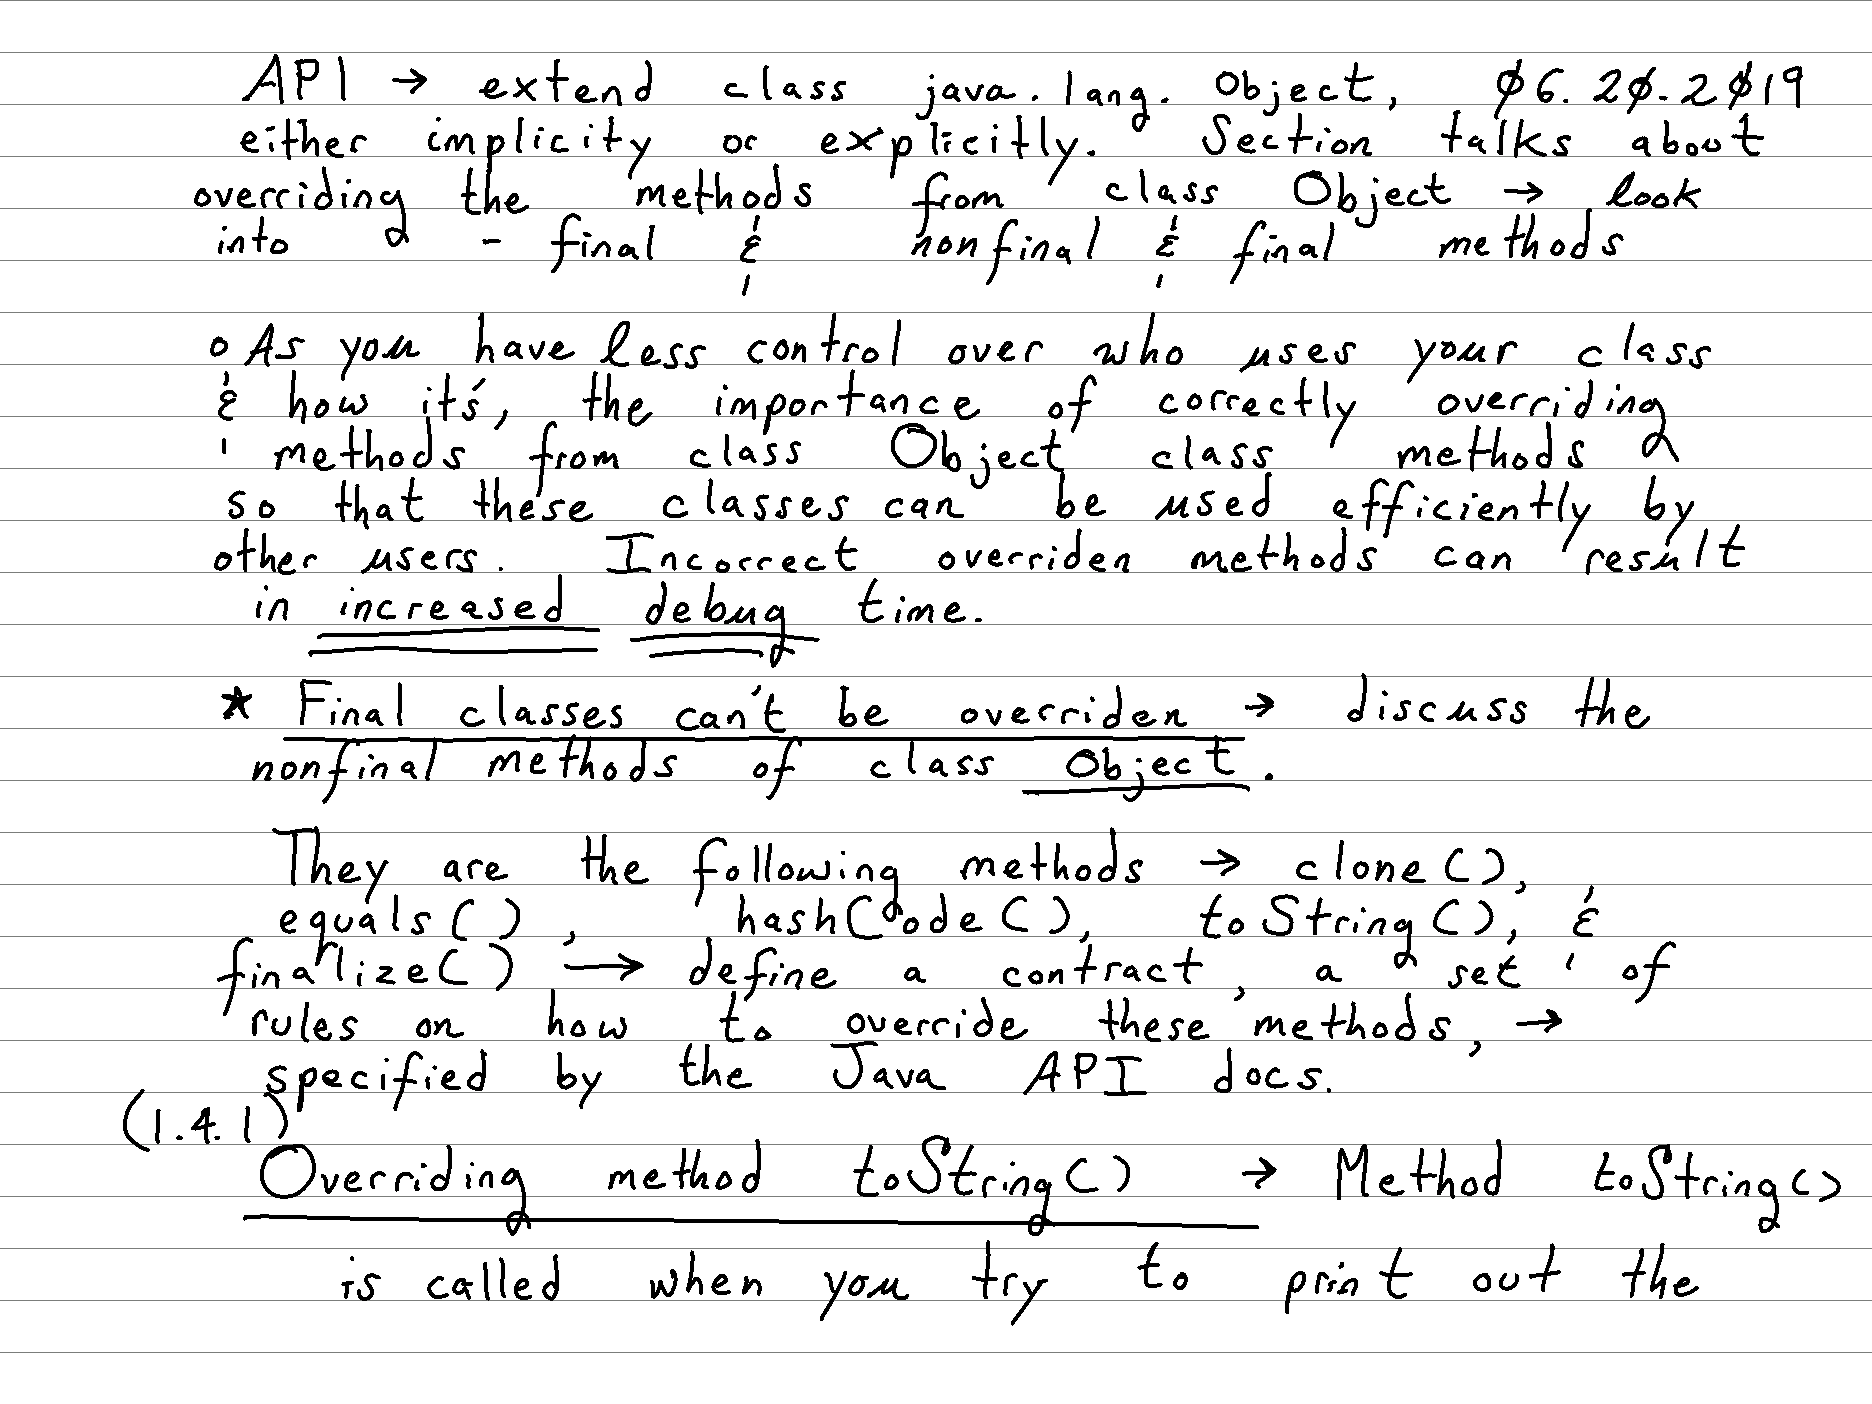 API → extend class java.lang.Object, 06.20.2019
either implicity or explicitly. Section talks about
overriding the methods from class Object → look
into - final & nonfinal & final methods
o As you have less control over who uses your class
& how it's, the importance of correctly overriding
methods from class Object class methods
so that these classes can be used efficiently by
other users. Incorrect overriden methods can result
in increased debug time.
* Final classes can't be overriden → discuss the
nonfinal methods of class Object.
They are the following methods → clone(),
equals(), hashCode(), toString(), &
finalize() → define a contract, a set of
rules on how to override these methods, →
specified by the Java API docs.
(1.4.1)
Overriding method toString() → Method toString()
is called when you try to print out the